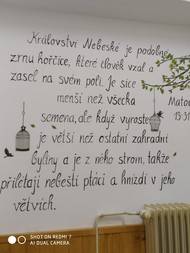 Království Nebeské je podobné
zrnu hořčice, které člověk vzal a
zasel na svém poli. Je sice
menší než všecka
semena, ale když vyroste,
je větší než ostatní zahradní
byliny a je z něho strom, takže
přilétají nebeští ptáci a hnízdí v jeho
větvích.
Matou
13:31
SHOT ON REDMI 7
AI DUAL CAMERA